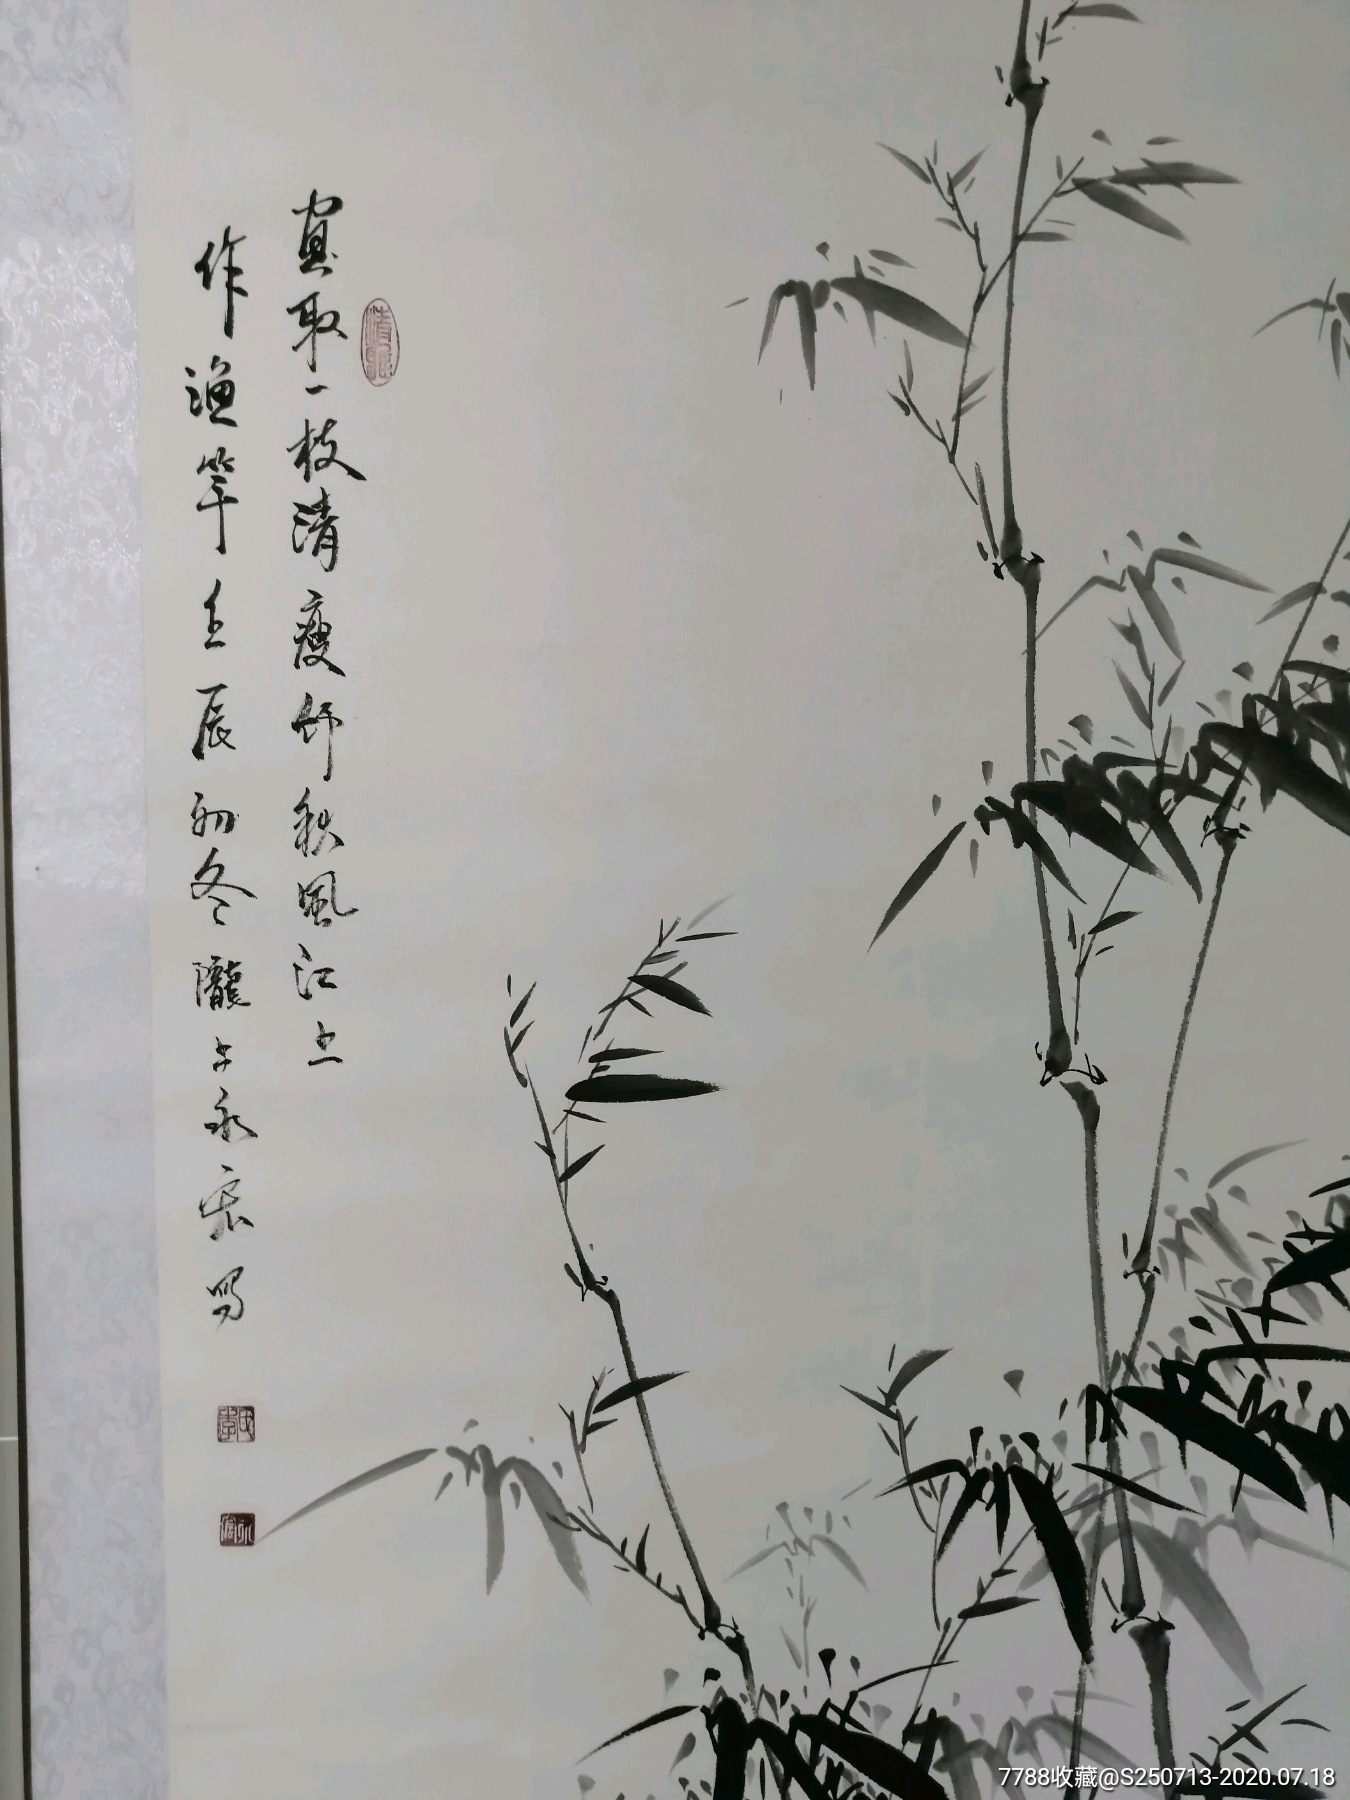 写取一枝清瘦竹秋風江上
作漁竿壬辰初冬隴上永宏写
7788收藏@S250713-2020.07.18